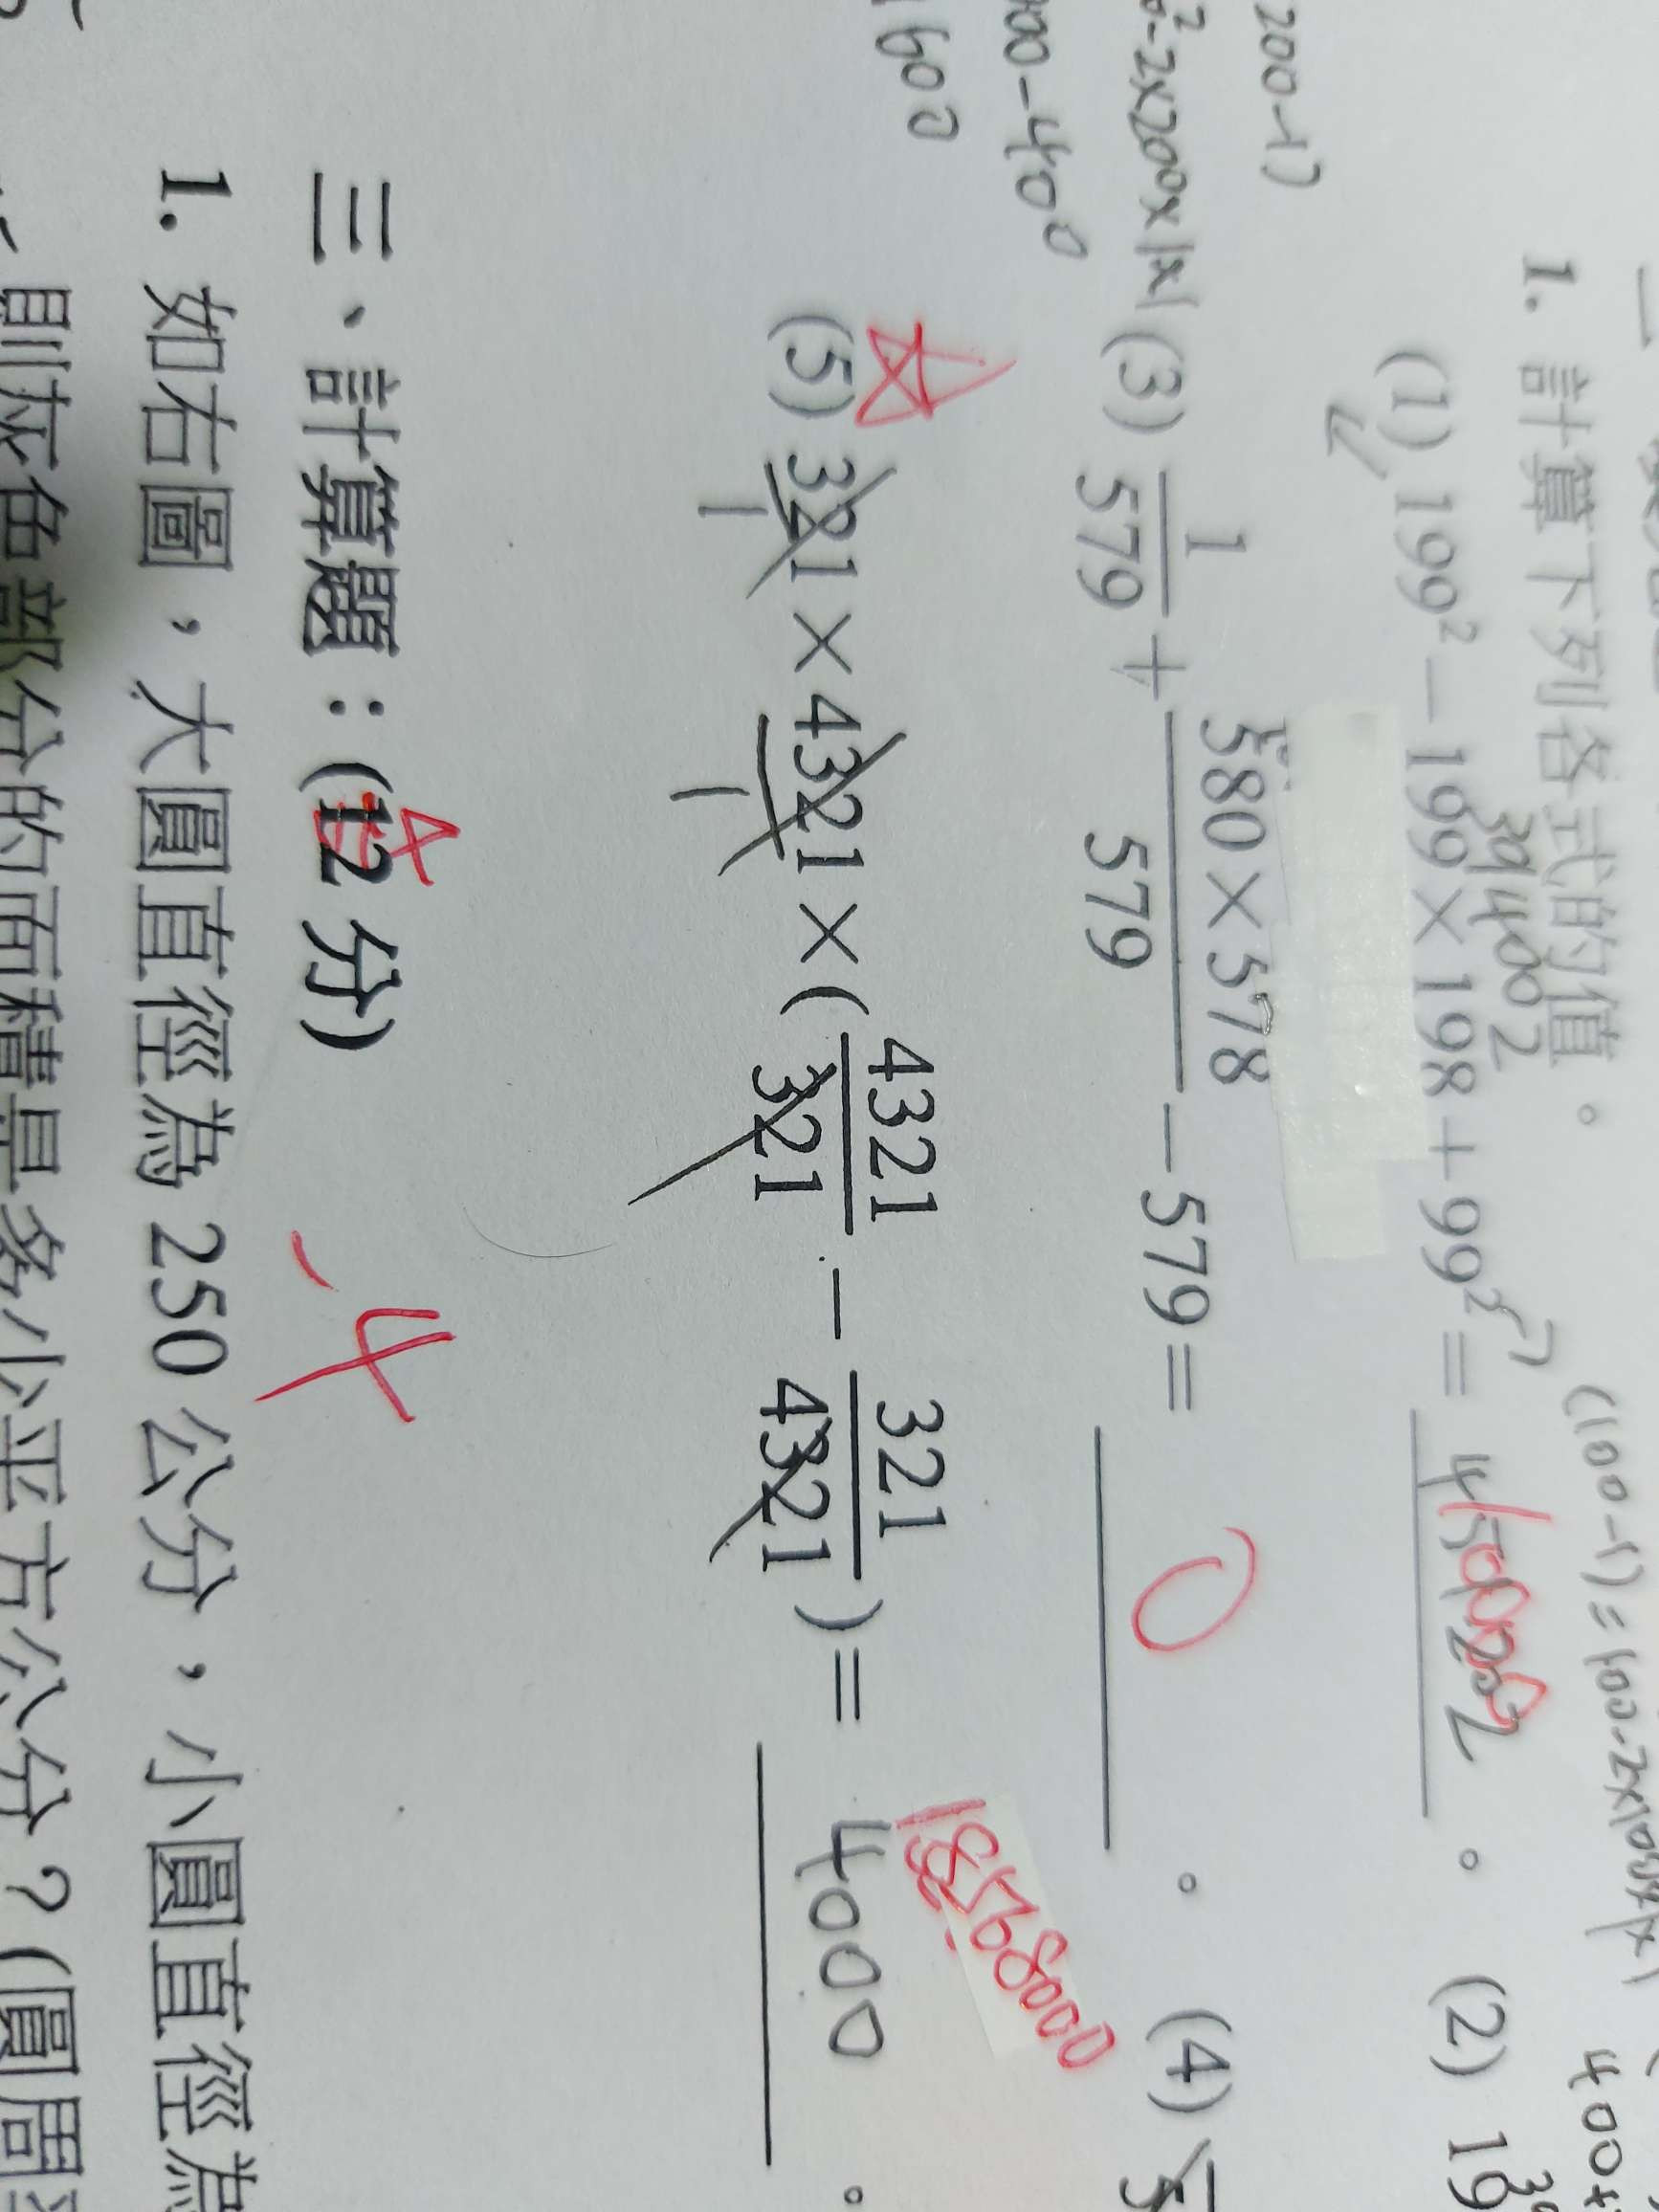 1. 計算下列各式的值。
(1) 199² − 199 × 198 + 99² =
394002
(100-1) = 100-2×100×1×1
(2) 19
200-1)
²-2×200×1×1
00-400
1600
(3) 1/579 + 580 × 578/579 − 579 = 0 。 (4)
(5) 321 × 4321 × (4321/321 − 321/4321) = 4000 。
1 1
18568000
三、計算題：(12 分)
-4
1. 如右圖，大圓直徑為 250 公分，小圓直徑為
則灰色部分的面積是多少平方公分？(圓周